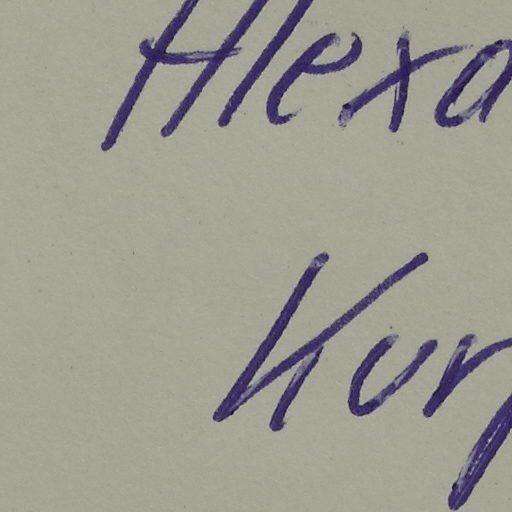 Alexa
Kur